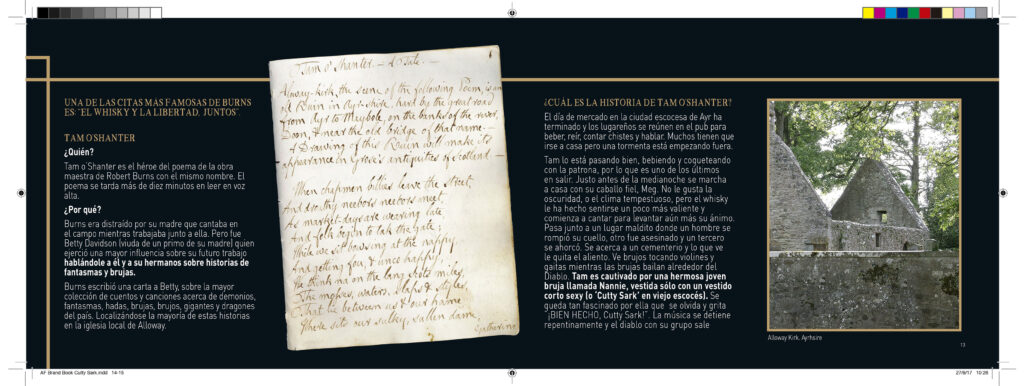 UNA DE LAS CITAS MÁS FAMOSAS DE BURNS
ES: “EL WHISKY Y LA LIBERTAD, JUNTOS”.
TAM O’SHANTER
¿Quién?
Tam o’Shanter es el héroe del poema de la obra
maestra de Robert Burns con el mismo nombre. El
poema se tarda más de diez minutos en leer en voz
alta.
¿Por qué?
Burns era distraído por su madre que cantaba en
el campo mientras trabajaba junto a ella. Pero fue
Betty Davidson (viuda de un primo de su madre) quien
ejerció una mayor influencia sobre su futuro trabajo
hablándole a él y a su hermanos sobre historias de
fantasmas y brujas.
Burns escribió una carta a Betty, sobre la mayor
colección de cuentos y canciones acerca de demonios,
fantasmas, hadas, brujas, brujos, gigantes y dragones
del país. Localizándose la mayoría de estas historias
en la iglesia local de Alloway.
Tam o' Shanter. — A Tale. —
Alloway-kirk, the scene of the following Poem, is an
old Ruin in Ayr-shire, hard by the great road
from Ayr to Maybole, on the banks of the river
Doon, & near the old bridge of that name. —
A Drawing of this Ruin will make its
appearance in Grose's antiquities of Scotland —
When chapman billies leave the street,
And drouthy neebors neebors meet,
As market-days are wearing late,
And folk begin to tak the gate;
While we sit bousing at the nappy,
And getting fou, & unco happy,
We think na on the lang Scots miles,
The mosses, waters, slaps & styles,
That lie between us & our hame
Where sits our sulky, sullen dame,
Gathering
¿CUÁL ES LA HISTORIA DE TAM O’SHANTER?
El día de mercado en la ciudad escocesa de Ayr ha
terminado y los lugareños se reúnen en el pub para
beber, reír, contar chistes y hablar. Muchos tienen que
irse a casa pero una tormenta está empezando fuera.
Tam lo está pasando bien, bebiendo y coqueteando
con la patrona, por lo que es uno de los últimos
en salir. Justo antes de la medianoche se marcha
a casa con su caballo fiel, Meg. No le gusta la
oscuridad, o el clima tempestuoso, pero el whisky
le ha hecho sentirse un poco más valiente y
comienza a cantar para levantar aún más su ánimo.
Pasa junto a un lugar maldito donde un hombre se
rompió su cuello, otro fue asesinado y un tercero
se ahorcó. Se acerca a un cementerio y lo que ve
le quita el aliento. Ve brujos tocando violines y
gaitas mientras las brujas bailan alrededor del
Diablo. Tam es cautivado por una hermosa joven
bruja llamada Nannie, vestida sólo con un vestido
corto sexy (o ‘Cutty Sark’ en viejo escocés). Se
queda tan fascinado por ella que se olvida y grita
“¡BIEN HECHO, Cutty Sark!”. La música se detiene
repentinamente y el diablo con su grupo sale
Alloway Kirk, Ayrhsire
13
AF Brand Book Cutty Sark.indd 14-15
27/9/17 10:28